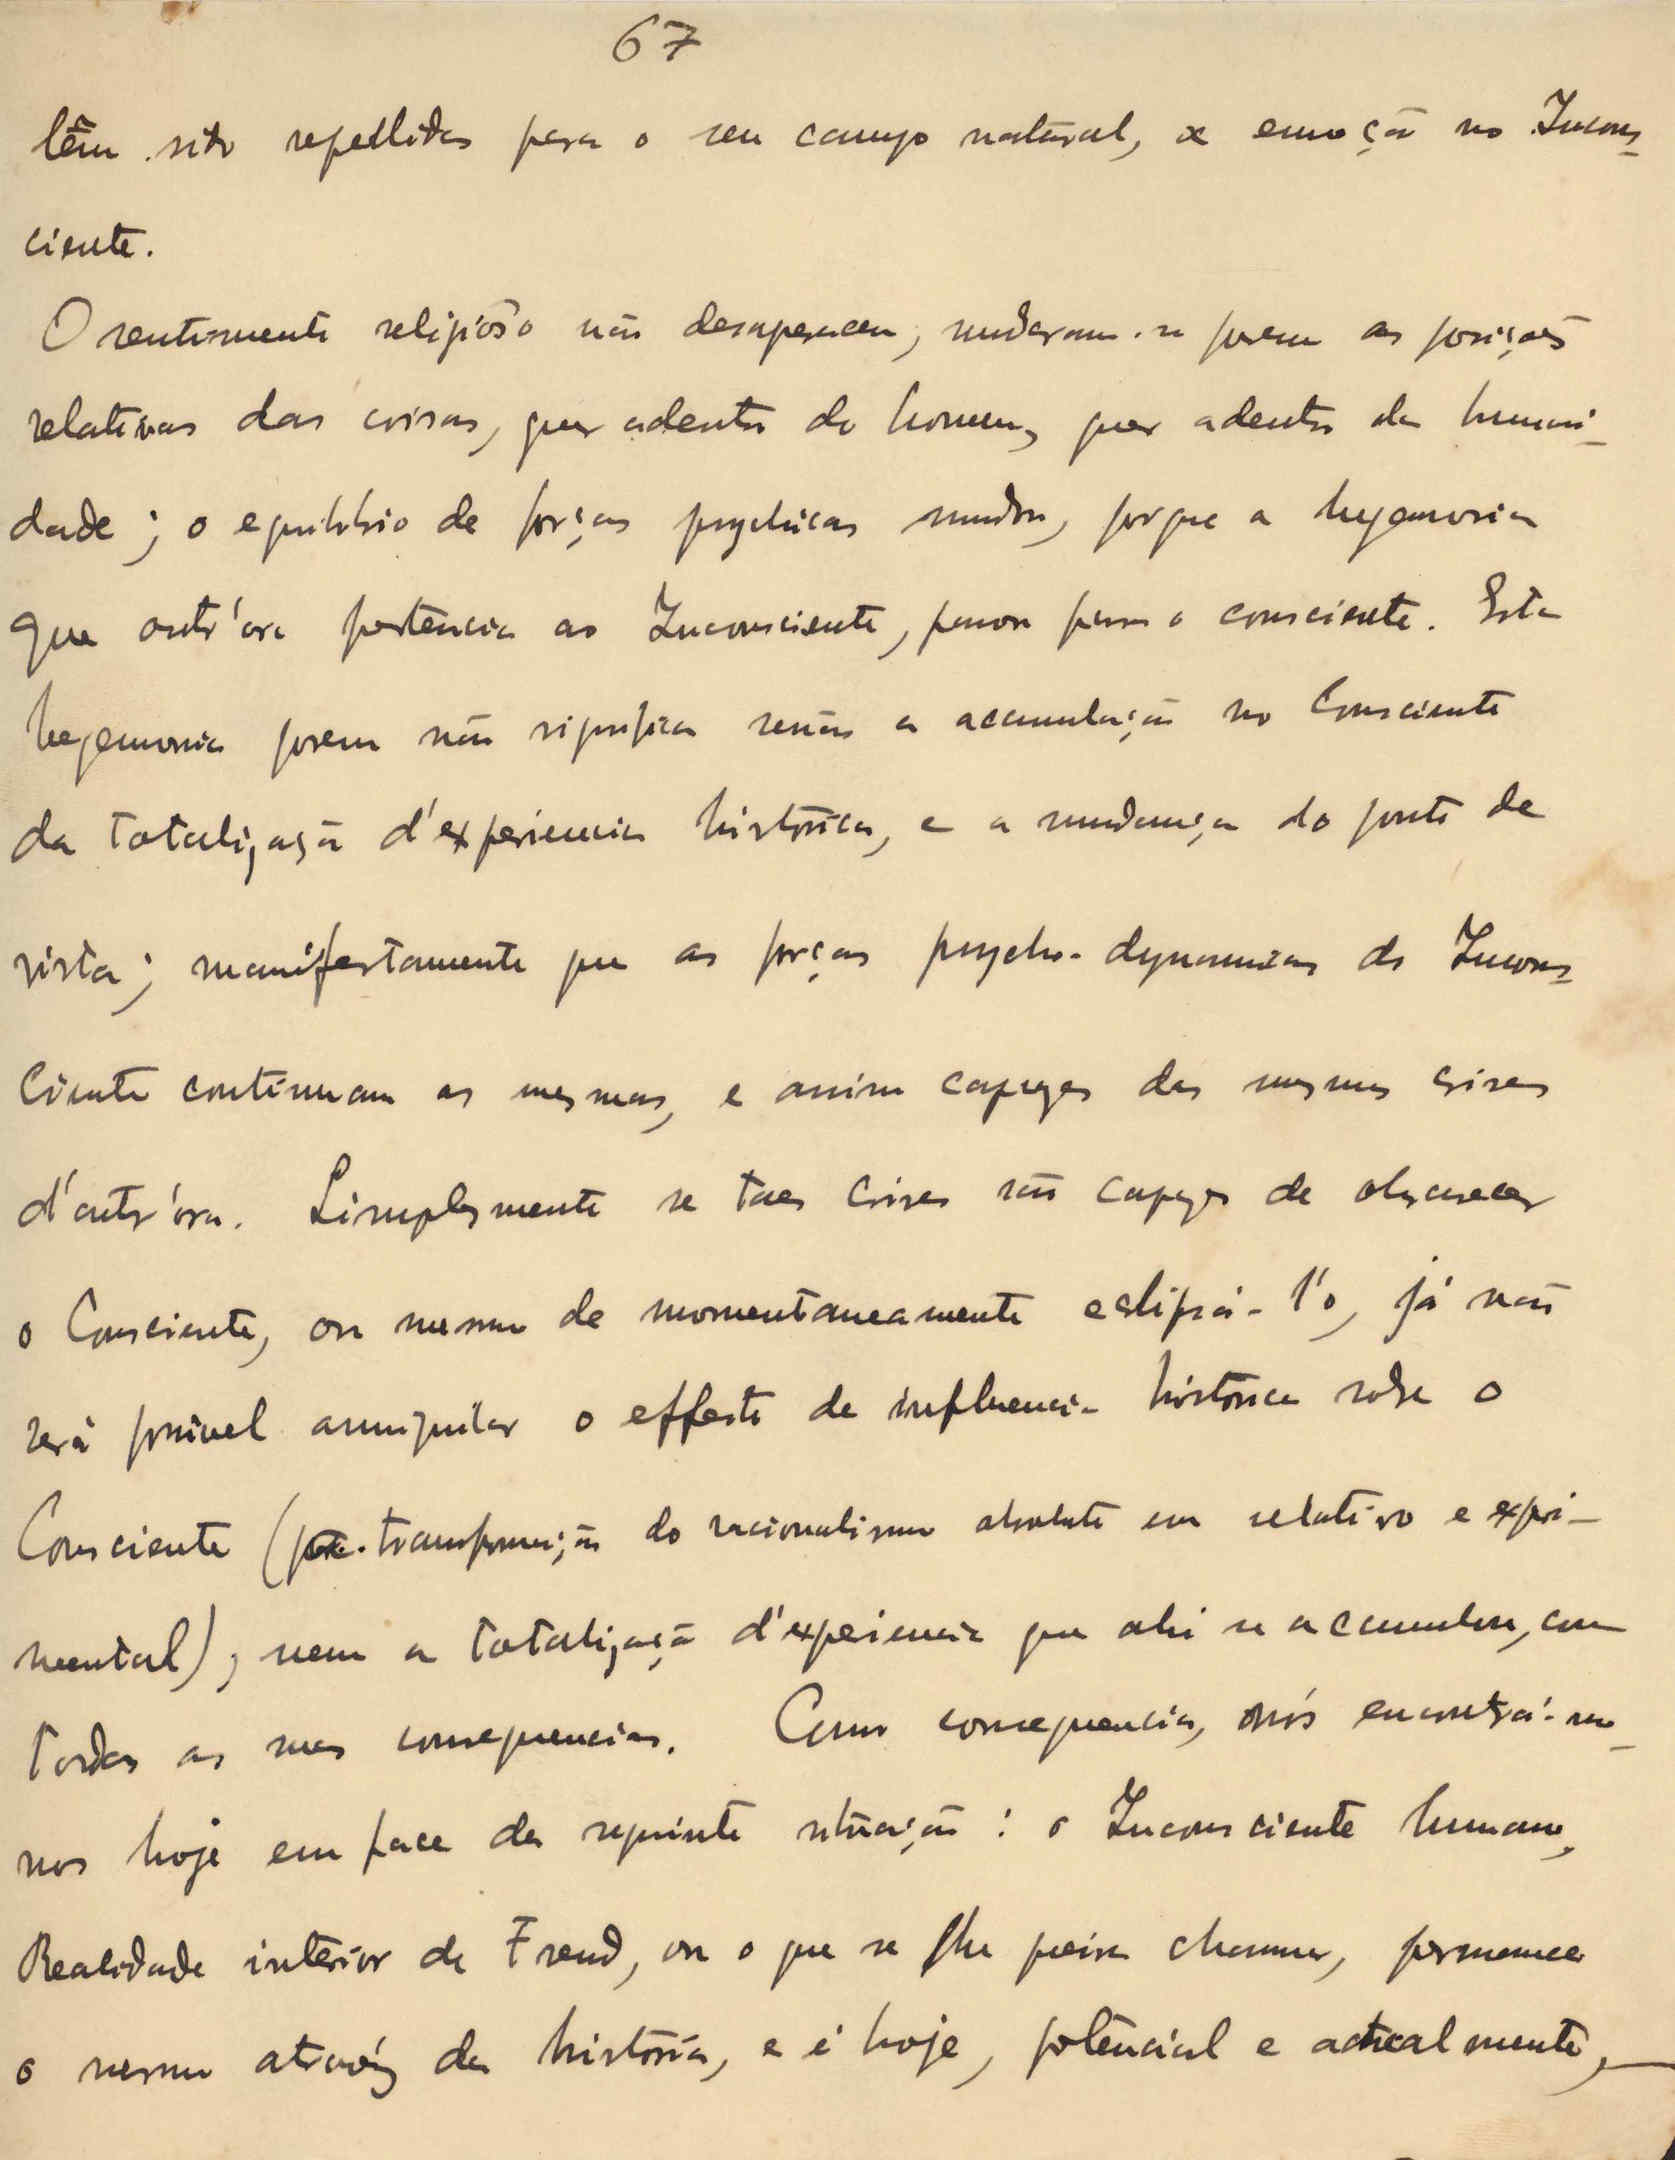 67
têm sido repellidas para o seu campo natural, a emoção no Incons-
ciente.
O sentimento religioso não desapareceu, mudaram-se porem as posições
relativas das coisas, quer adentro do homem, quer adentro da humani-
dade; o equilibrio de forças psychicas mudou, porque a hegemonia
que outr'ora pertencia ao Inconsciente, passou para o consciente. Esta
hegemonia porem não significa senão a acumulação no Consciente
da totalização d'experiencia historica, e a mudança do ponto de
vista; manifestamente que as forças psycho-dynamicas do Incons-
ciente continuam as mesmas, e assim capazes das mesmas crises
d'outr'ora. Simplesmente se taes crises são capazes de obscurecer
o Consciente, ou mesmo de momentaneamente eclipsá-l'o, já não
será possivel anniquilar o effeito de influencia historica sobre o
Consciente (transformação do racionalismo absoluto em relativo e experi-
mental), nem a totalização d'experiencia que ahi se accumulou, com
todas as suas consequencias. Como consequencia, nós encontrá-mo-
nos hoje em face da seguinte situação: o Inconsciente humano,
Realidade interior de Freud, ou o que se lhe queira chamar, permanece
o mesmo atravéz da historia, e é hoje, potencial e actualmente,